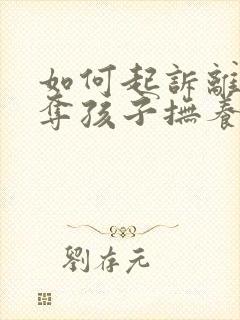 如何起訴離
奪孩子撫養
劉存元